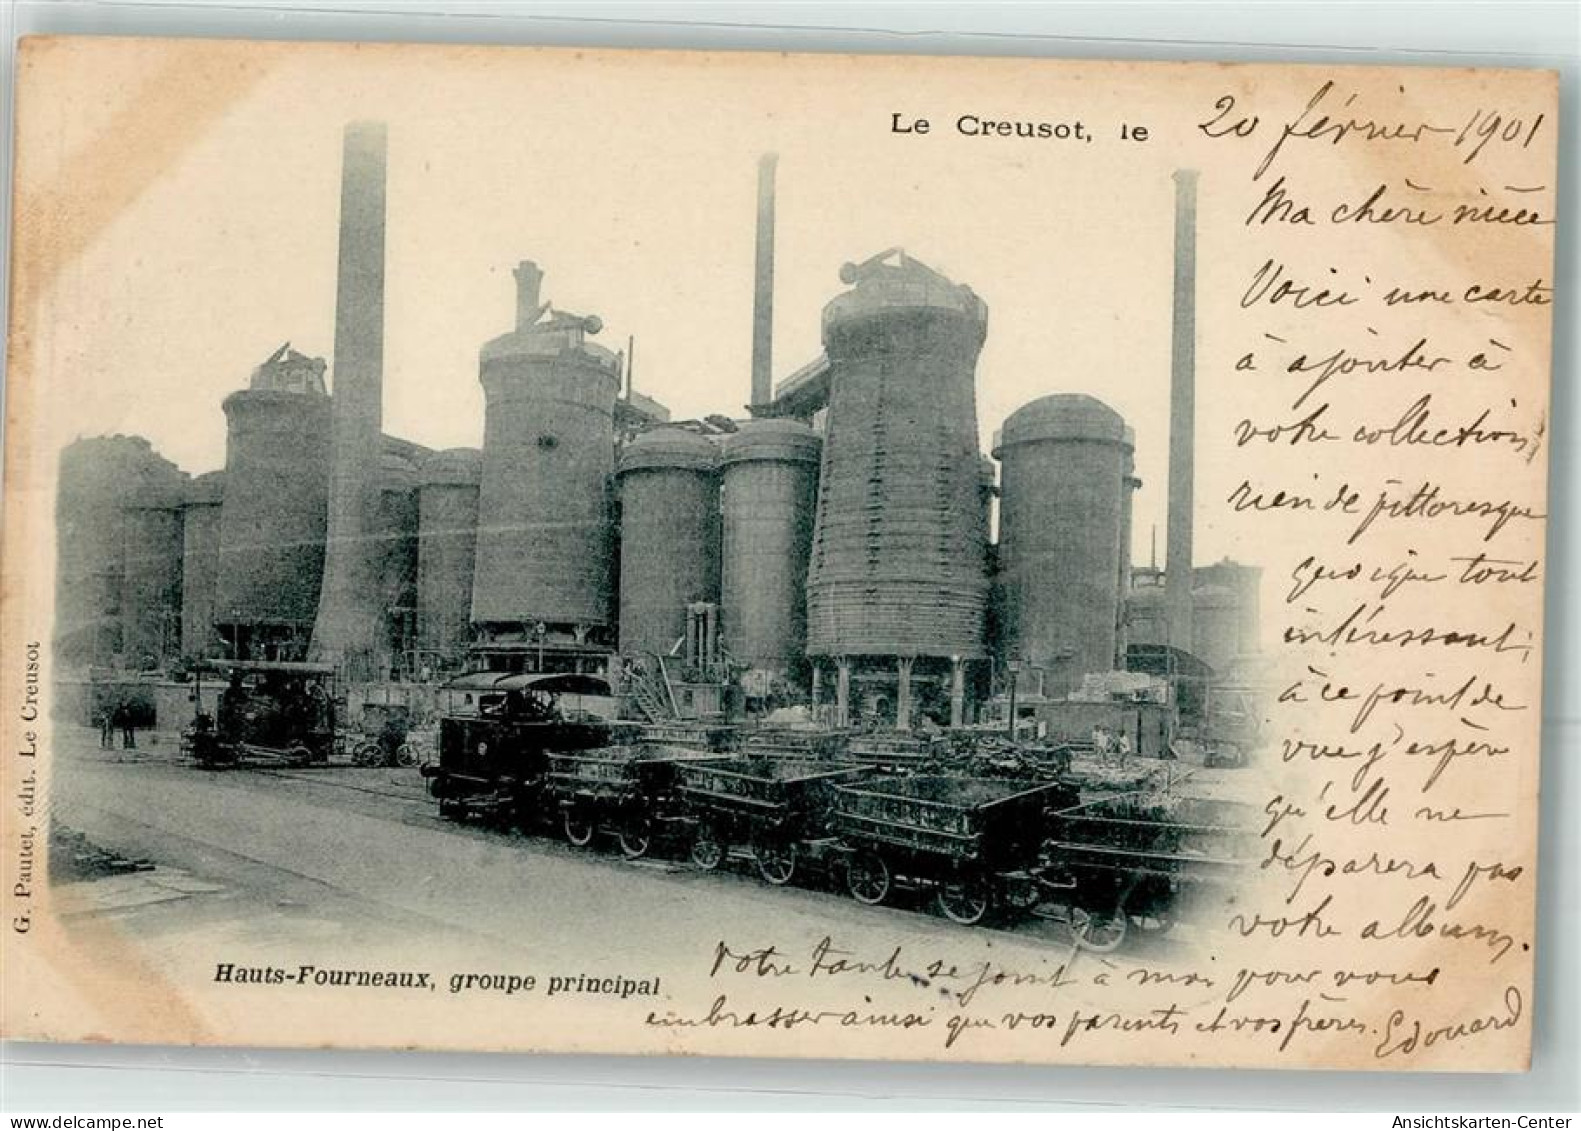 Le Creusot, le 20 février 1901
Ma chère nièce
Voici une carte
à ajouter à
votre collection,
rien de pittoresque
quoique tout
intéressant;
à ce point de
vue j'espère
qu'elle ne
déparera pas
votre album.
Votre tante se joint à moi pour vous
embrasser ainsi que vos parents et vos frères. Edouard
Hauts-Fourneaux, groupe principal
G. Pautet, édit. Le Creusot
delcampe.net
Ansichtskarten-Center